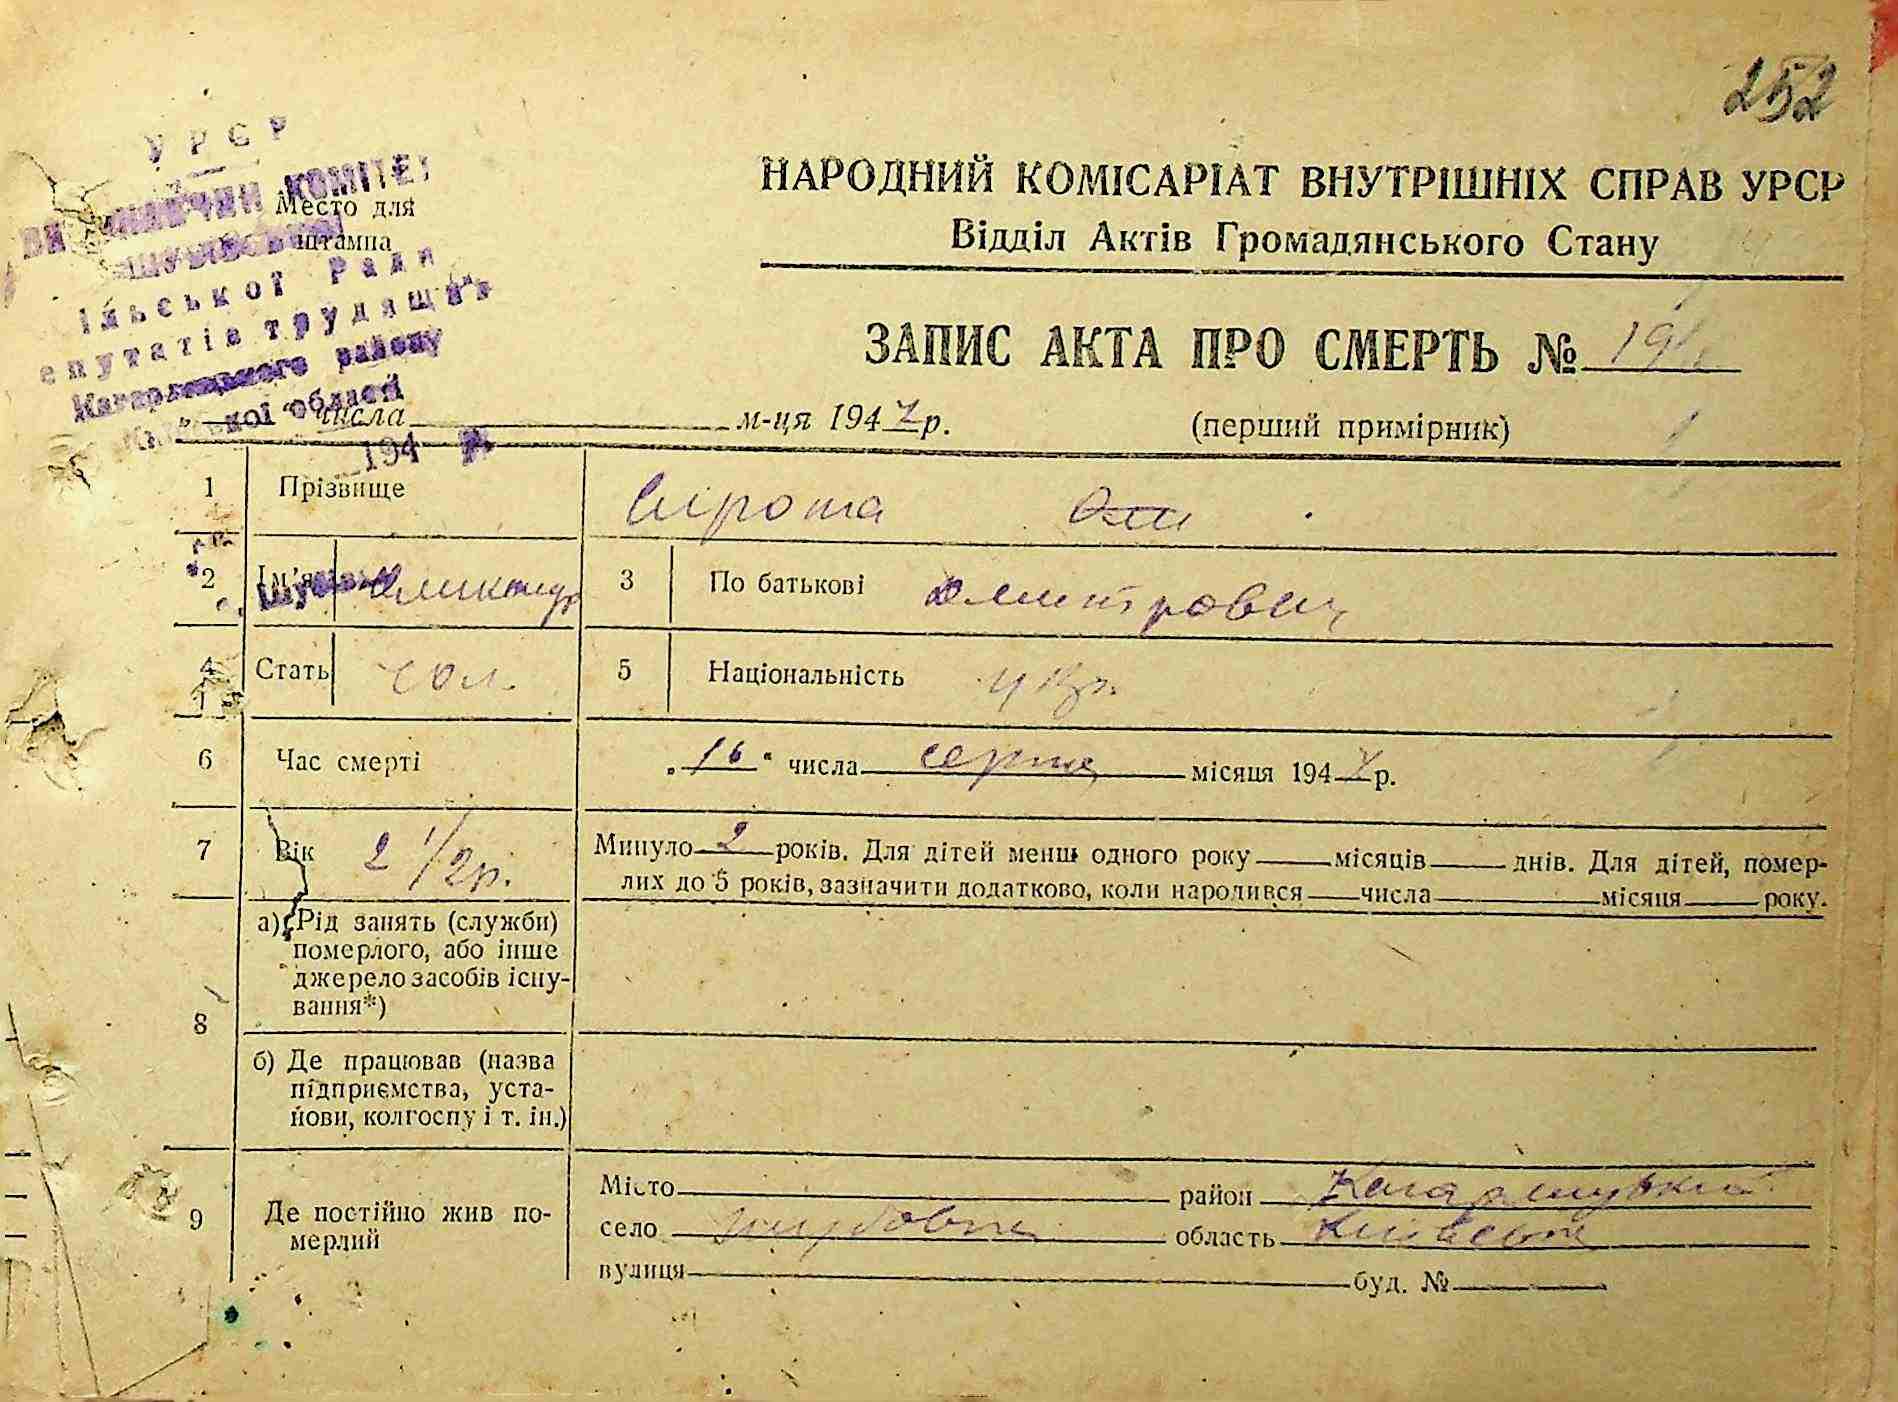 252
УРСР
КОМІТЕТ
Место для
штампа
ільської Ради
епутатів трудящих
Кагарлицького району
кої області
194 р.
НАРОДНИЙ КОМІСАРІАТ ВНУТРІШНІХ СПРАВ УРСР
Відділ Актів Громадянського Стану
ЗАПИС АКТА ПРО СМЕРТЬ №
числа м-ця 1947 р. (перший примірник)
1 Прізвище Сирота
2 Ім'я 3 По батькові Дмитрович
4 Стать чол. 5 Національність укр.
6 Час смерті „16" числа серпня місяця 1947 р.
7 Вік 2 1/2 р. Минуло 2 років. Для дітей менш одного року місяців днів. Для дітей, помер-
лих до 5 років, зазначити додатково, коли народився числа місяця року.
8 а) Рід занять (служби)
померлого, або інше
джерело засобів існу-
вання*)
б) Де працював (назва
підприємства, уста-
нови, колгоспу і т. ін.)
9 Де постійно жив по-
мерлий
Місто район Кагарлицький
село область Київська
вулиця буд. №